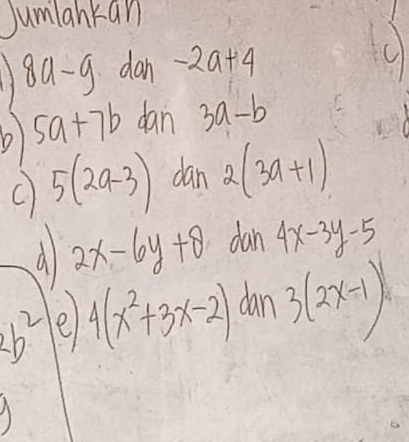 Jumlahkan
a) 8a-9 dan -2a+4
b) 5a+7b dan 3a-b
c) 5(2a-3) dan 2(3a+1)
d) 2x-6y+8 dan 4x-3y-5
e) 4(x²+3x-2) dan 3(2x-1)
c)
2b²